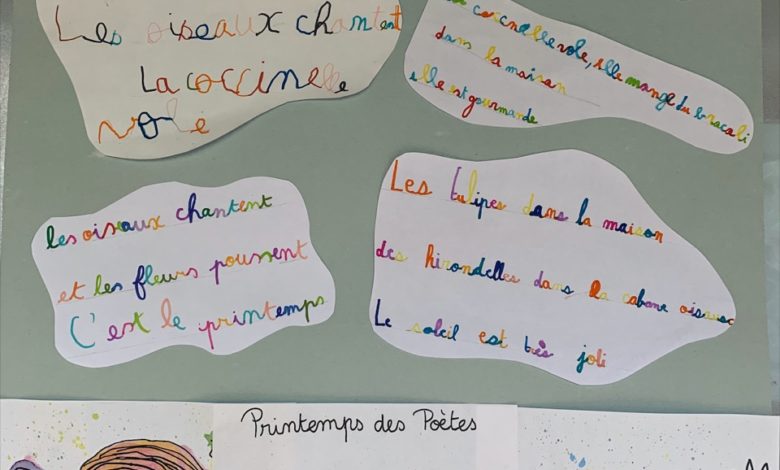 Les oiseaux chantent
La coccinelle
vole
La coccinelle vole, elle mange du brocali
dans la maison
elle est gourmande
les oiseaux chantent
et les fleurs poussent
C'est le printemps
Les tulipes dans la maison
des hirondelles dans la cabane
Le soleil est très joli
Printemps des Poètes